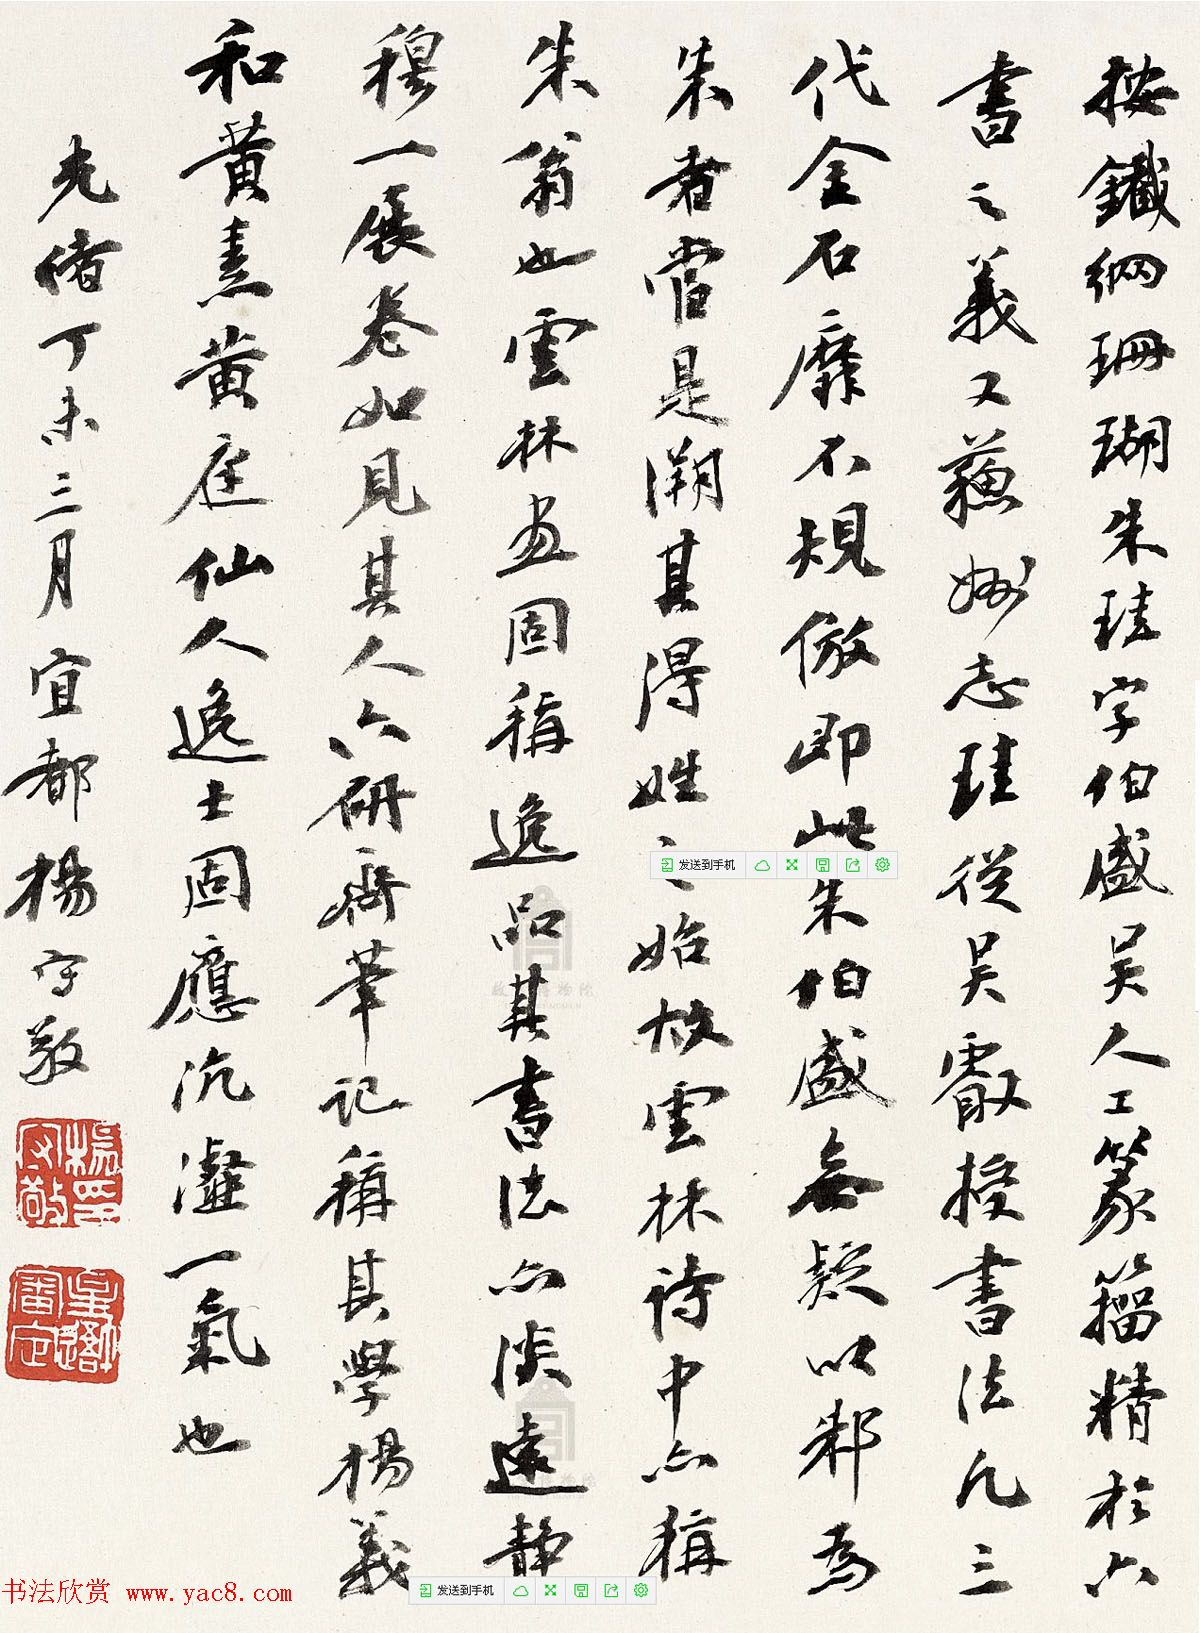 按鐵網珊瑚朱珪字伯盛吳人工篆籀精於六
書之義又蘇州志珪從吳叡授書法凡三
代金石靡不規倣即此朱伯盛無疑以邾為
朱者當是溯其得姓之始故雲林詩中亦稱
朱翁也雲林畫固稱逸品其書法亦淡遠靜
穆一展卷如見其人六研齋筆記稱其學楊羲
和黃素黃庭仙人逸士固應沆瀣一氣也
光緒丁未三月宜都楊守敬
楊守敬印
星吾審定
發送到手机
发送到手机
故宫博物院
书法欣赏 www.yac8.com